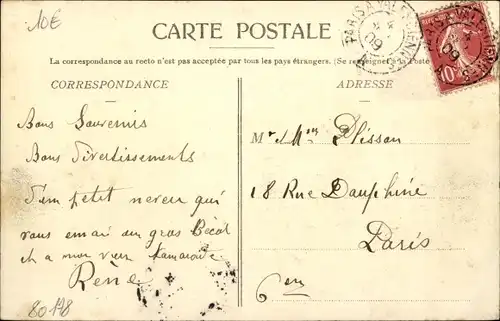 10€
CARTE POSTALE
La correspondance au recto n'est pas acceptée par tous les pays étrangers. (Se renseigner à la Poste
CORRESPONDANCE
ADRESSE
PARIS A VALENCIENNES
09
10
Bons Souvenirs
Bons Divertissements
D'un petit neveu qui
vous envoi un gros Bécot
et a mon vieux Kamarade
René
Mr et Mme Plisson
18 Rue Dauphine
Paris
6em
80178